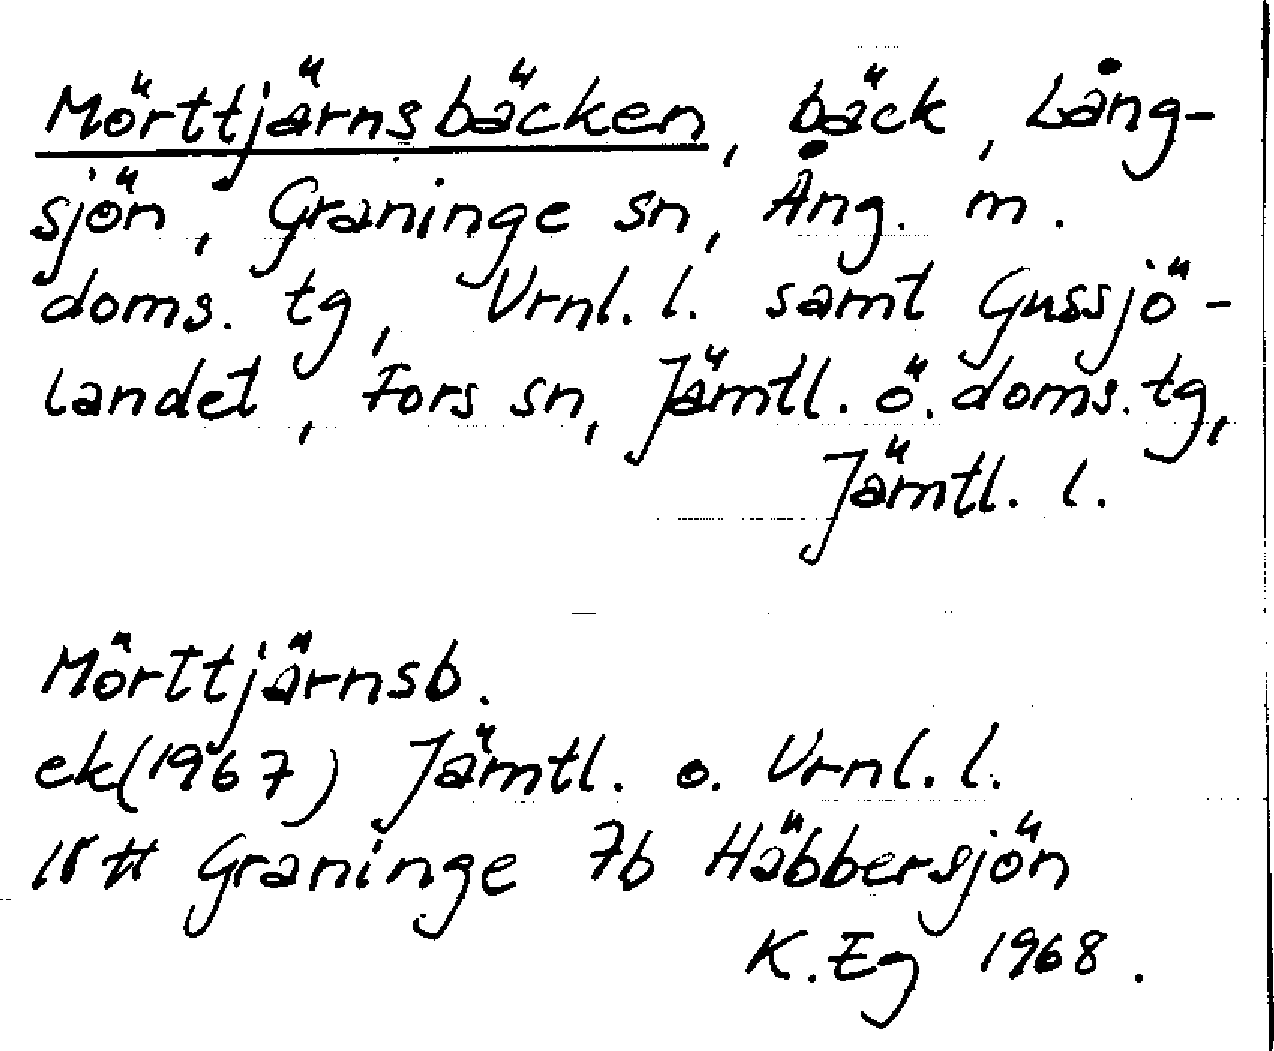 Mörttjärnsbäcken, bäck, Lång-
sjön, Graninge sn, Ång. m.
doms. tg, Vrnl. l. samt Gussjö-
landet, Fors sn, Jämtl. ö. doms. tg,
Jämtl. l.
Mörttjärnsb.
ek(1967) Jämtl. o. Vrnl. l.
18H Graninge 7b Häbbersjön
K. Eg 1968.